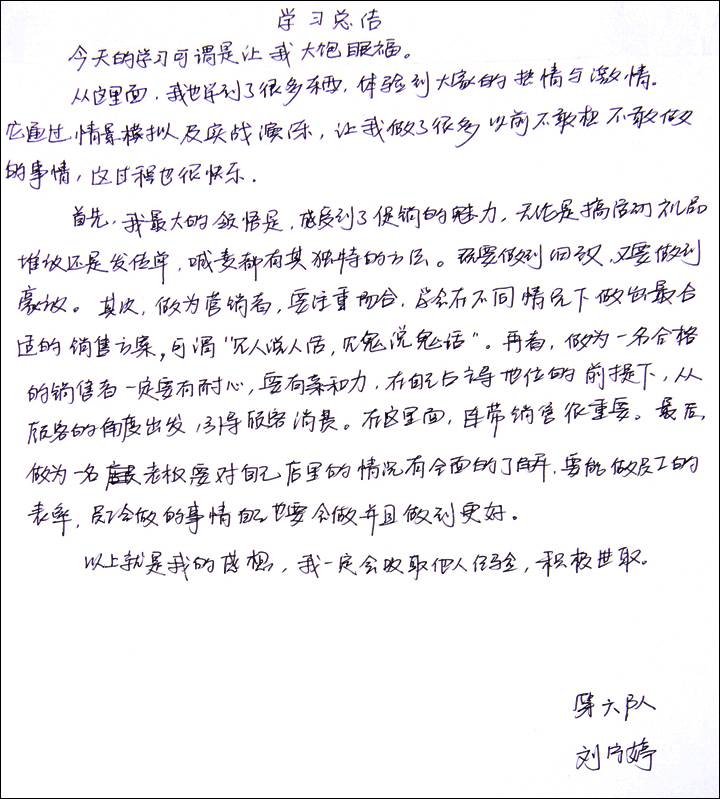 学习总结
今天的学习可谓是让我大饱眼福。
从这里面,我也学到了很多东西,体验到大家的热情与激情.
它通过情景模拟及实战演练,让我做了很多以前不敢想不敢做
的事情,这过程也很快乐.
首先,我最大的领悟是,感受到了促销的魅力,无论是搞活动礼品
堆放还是发传单,喊麦都有其独特的方法。既要做到回放,又要做到
豪放。其次,做为营销者,要注重配合,学会在不同情况下做出最合
适的销售方案,可谓“见人说人话,见鬼说鬼话”。再者,做为一名合格
的销售者一定要有耐心,要有亲和力,在自己占主导地位的前提下,从
顾客的角度出发,引导顾客消费。在这里面,连带销售很重要。最后,
做为一名老板要对自己店里的情况有全面的了解,要能做员工的
表率,员工会做的事情自己也要会做并且做到更好。
以上就是我的感想,我一定会吸取他人经验,积极进取。
第六队
刘婷